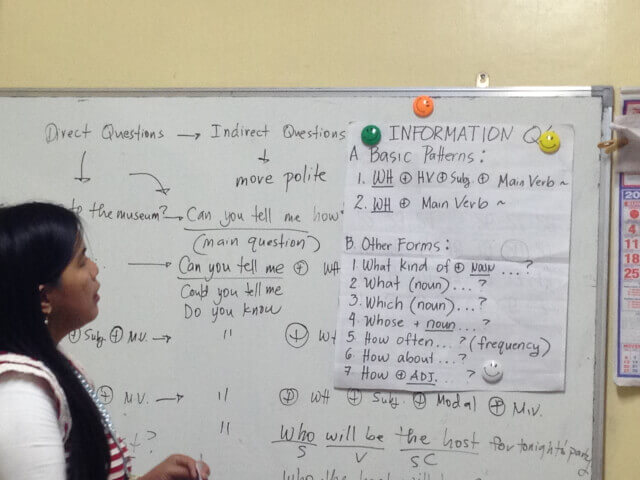 Direct Questions → Indirect Questions
move polite
to the museum? → Can you tell me how
(main question)
→ Can you tell me ⊕ WH
Could you tell me
Do you know
⊕ Subj. ⊕ M.V. → " ⊕
⊕ M.V. → " ⊕ WH ⊕ Subj. ⊕ Modal ⊕ M.V.
"
Who will be the host for tonight's party
S V SC
INFORMATION Q's
A. Basic Patterns:
1. WH ⊕ HV ⊕ Subj. ⊕ Main Verb ~
2. WH ⊕ Main Verb ~
B. Other Forms:
1. What kind of ⊕ NOUN ...?
2. What (noun)...?
3. Which (noun)...?
4. Whose + noun...?
5. How often...? (frequency)
6. How about...?
7. How ⊕ ADJ. ...?
4
11
18
25